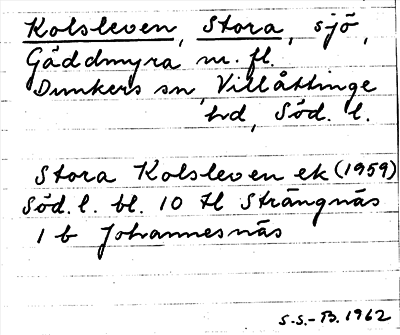 Kolsleven, Stora, sjö,
Gäddmyra m. fl.
Dunkers sn, Villåttinge
hd, Söd. l.
Stora Kolsleven ek (1959)
Söd. l. bl. 10 tl Strängnäs
1 b Johannesnäs
S.S.-B. 1962